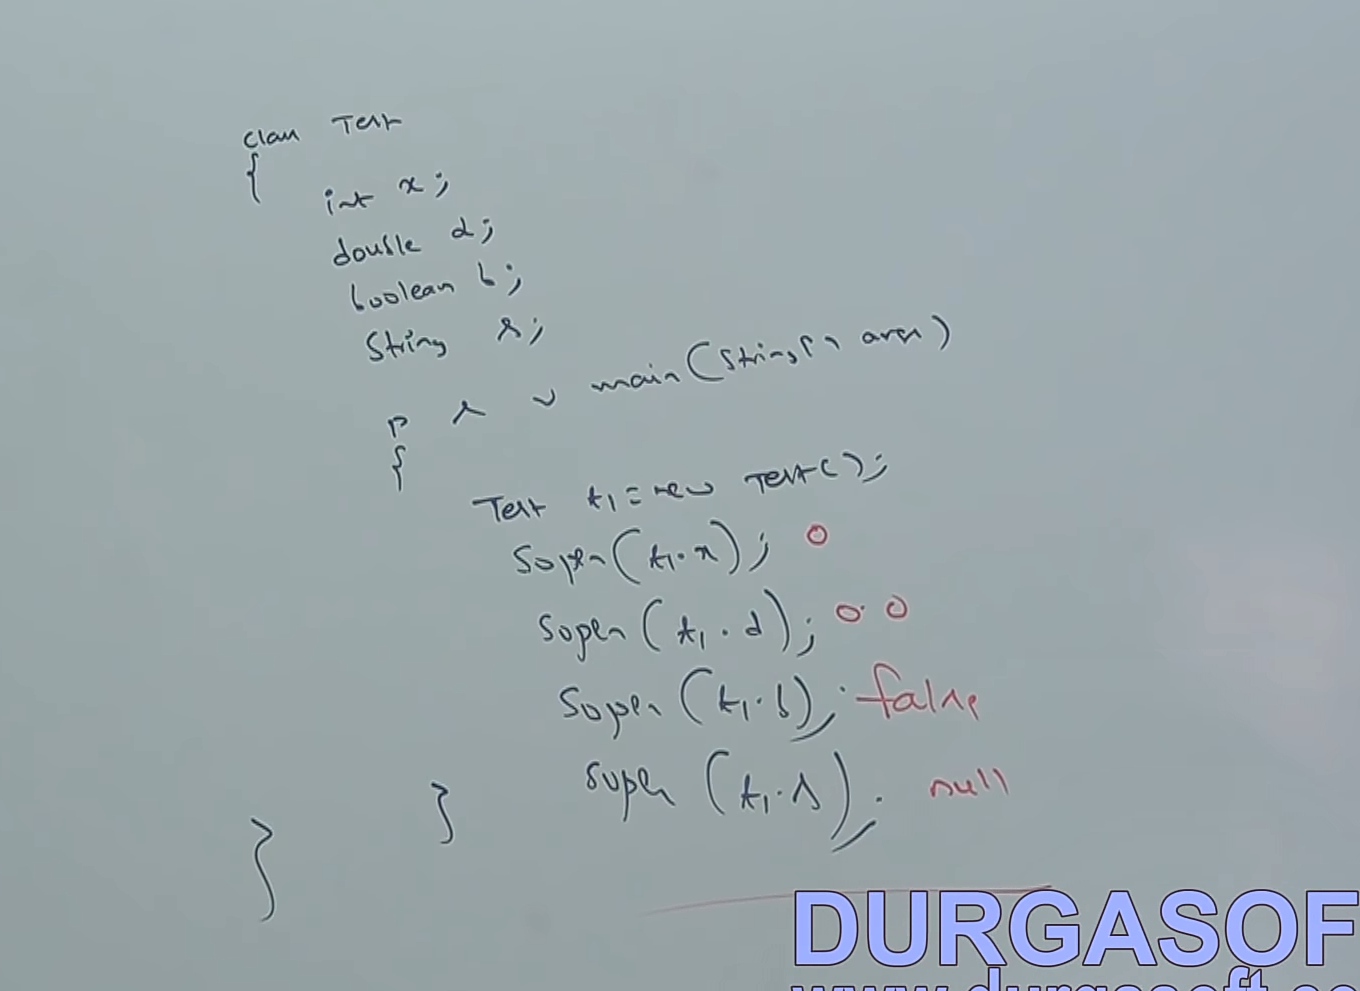 class Test
{
int x;
double d;
boolean b;
String s;
p s v main(String[] args)
{
Test t1=new Test();
Sopln(t1.x); 0
Sopln(t1.d); 0.0
Sopln(t1.b); false
Sopln(t1.s); null
}
}
DURGASOF
www.durgasoft.co